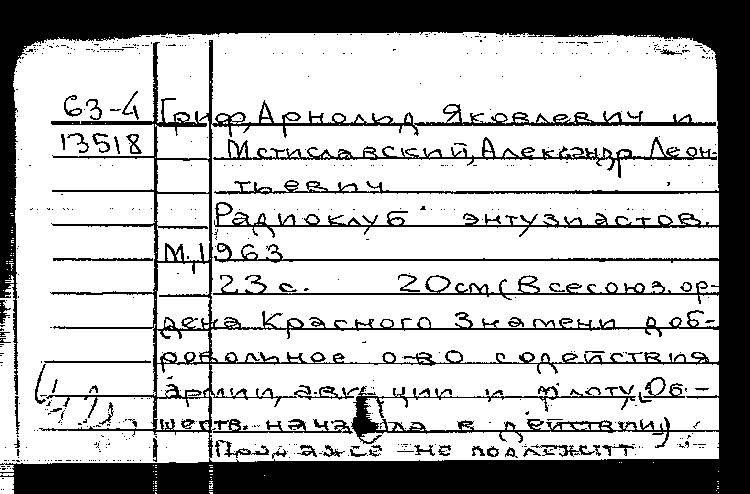 63-4 Гриф, Арнольд Яковлевич и
13518 Мстиславский, Александр Леон-
тьевич
Радиоклуб энтузиастов.
М., 1963
23 с. 20 см (Всесоюз. ор-
дена Красного Знамени доб-
ровольное о-во содействия
армии, авиации и флоту. Об-
ществ. начала в действии)
Продаже не подлежит